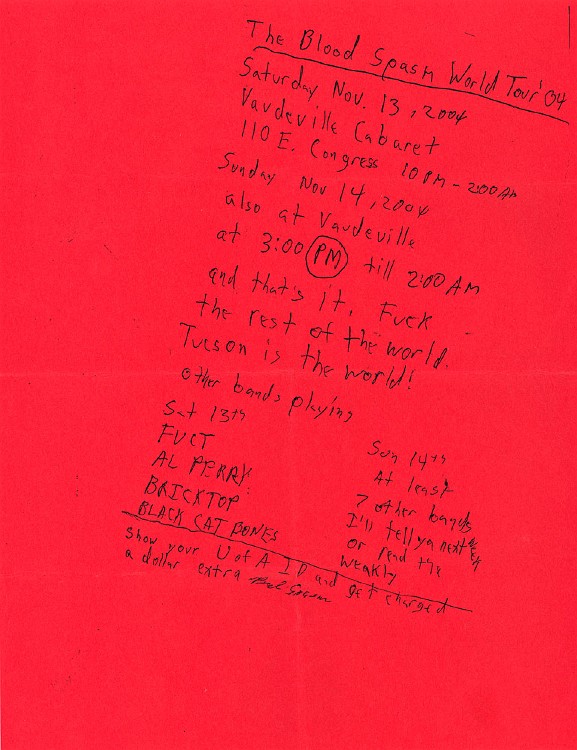 The Blood Spasm World Tour '04
Saturday Nov. 13, 2004
Vaudeville Cabaret
110 E. Congress 10PM - 2:00AM
Sunday Nov 14, 2004
also at Vaudeville
at 3:00 PM till 2:00 AM
and that's it. Fuck
the rest of the world.
Tucson is the world!
other bands playing
Sat 13th
FUCT
AL PERRY
BRICKTOP
BLACK CAT BONES
Sun 14th
At least
7 other bands
I'll tell ya next week
or read the
weakly
Show your U of A ID and get charged
a dollar extra